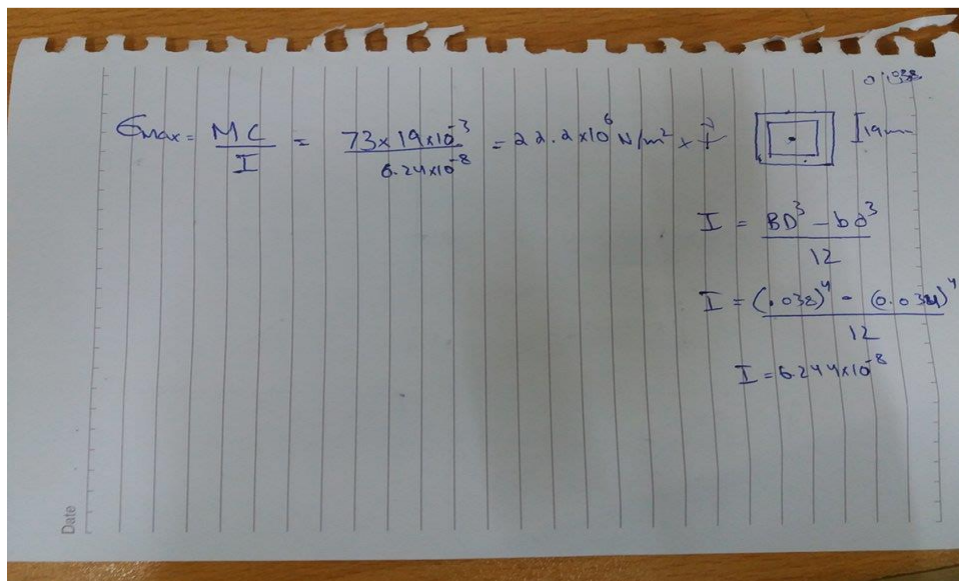 σmax = MC/I = 73×19×10⁻³/6.24×10⁻⁸ = 22.2×10⁶ N/m² ×
19mm
I = BD³ - bd³/12
I = (.038)⁴ - (0.034)⁴/12
I = 6.244×10⁻⁸
Date